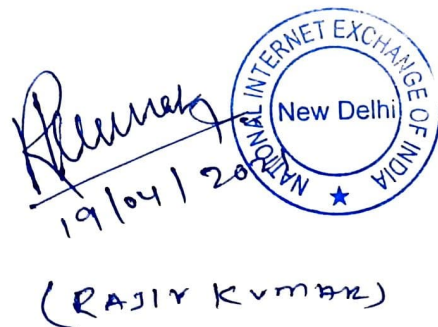 NATIONAL INTERNET EXCHANGE OF INDIA
New Delhi
19/04/20
(RAJIV KUMAR)